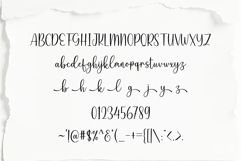 ABCDEFGHIJKLMNOPQRSTUVWXYZ
abcdefghijklmnopqrstuvwxyz
b h k l g j y z
0123456789
~!@#$%^&*(_-+={[[\:"<,>.